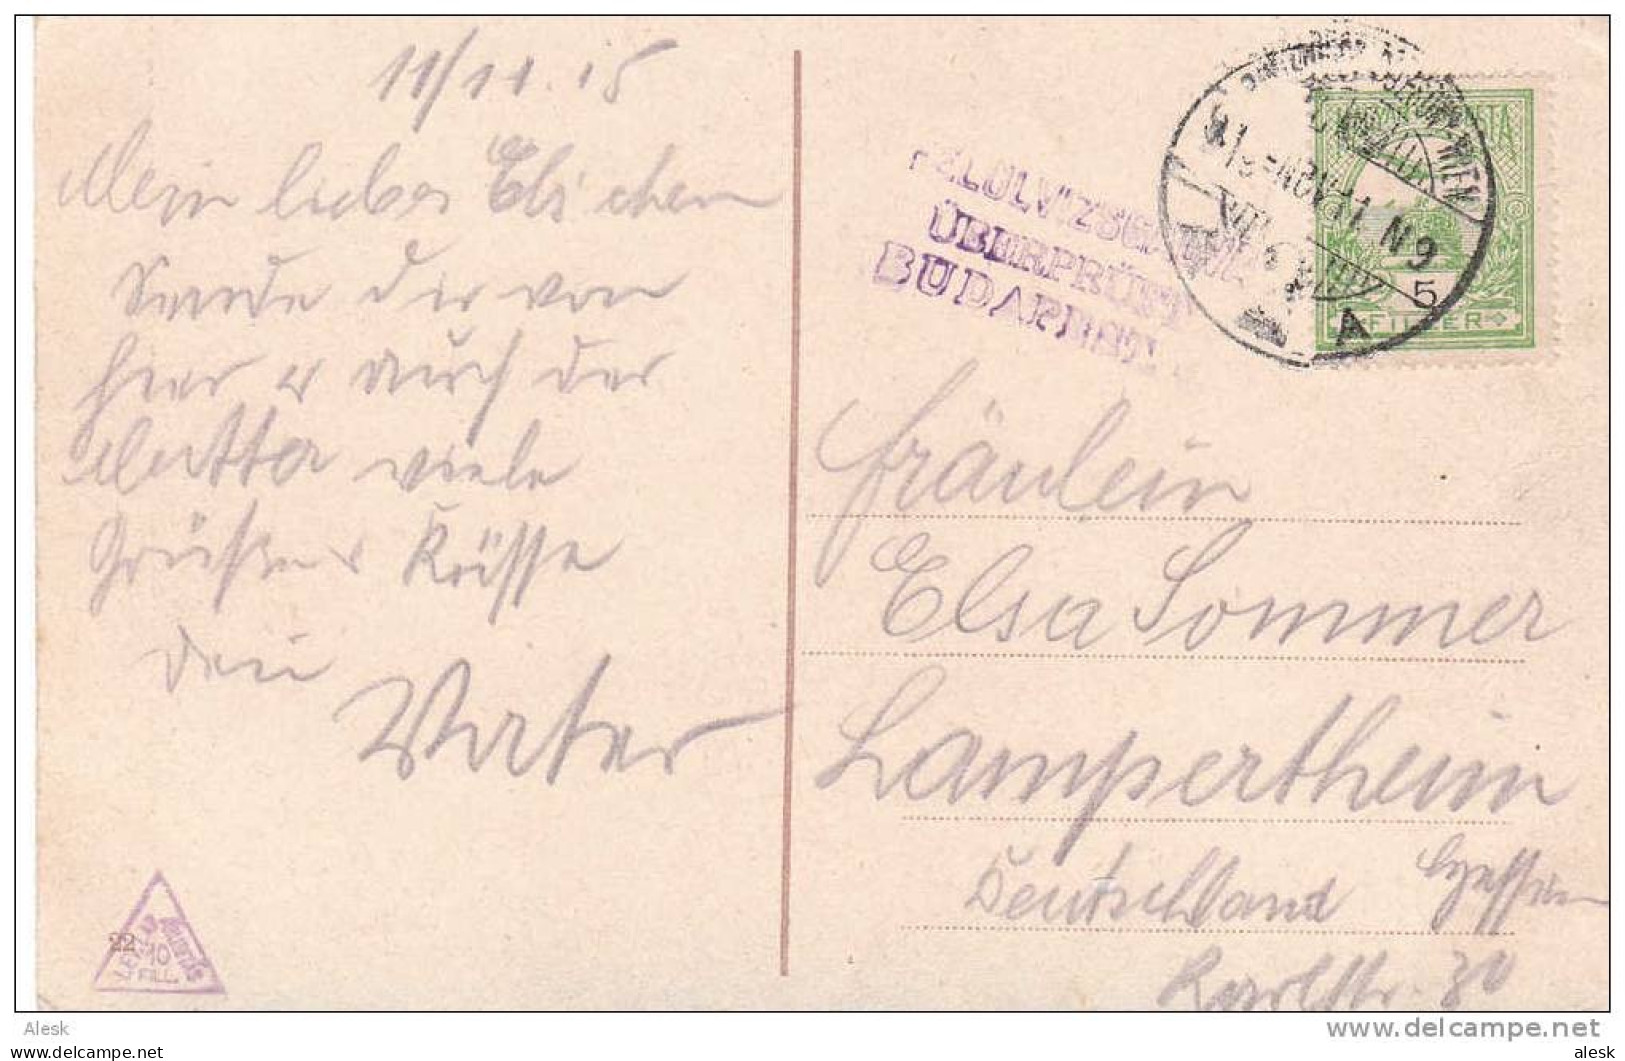 11/11. 15
Mein liebes Elschen
Sende dir von
hier u auch der
Mutter viele
Grüße u Küsse
dein
Vater
FELÜLVIZSGÁLVA
ÜBERPRÜFT
BUDAPEST
WIEN
915 NOV 11 N 9
A 5
FILLER
Fräulein
Elsa Sommer
Lampertheim
Deutschland Hessen
Karlstr. 30
22
10
FILL
Alesk
delcampe.net
alesk